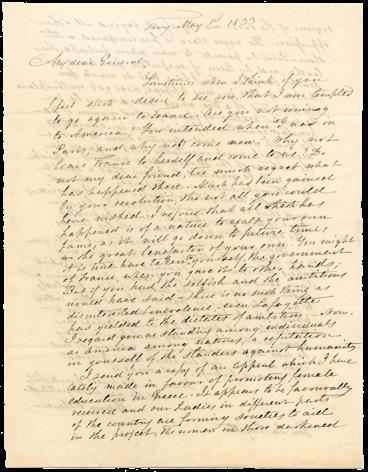 Troy May 1st 1833
My dear General,
Sometimes when I think of you
I feel such a desire to see you, that I am tempted
to go again to France. Are you not coming
to America? You intended when I was in
Paris, and why not come now? Why not
leave France to herself and come to us? Do
not my dear friend, too much regret what
has happened there. Much has been gained
by your revolution, tho not all you could
have wished. I rejoice that all which has
happened is of a nature to exalt your own
fame, as it will go down to future times
as the great benefactor of your one. You might
it is true have to yourself, the government
of France when you gave it to other hands.
But if you had, the selfish and the ambitious
would have said – there is no such thing as
disinterested benevolence – even Lafayette
has yielded to the dictates of ambition. – Now.
I regard you as standing among individuals
as America among nations, a refutation
in yourself of the slanders against humanity
I send you a copy of an appeal which I have
lately made in favour of promoting female
education in Greece. It appears to be favourably
received and our Ladies in different parts
of the country are forming societies to aid
in the project. The women in those darkened